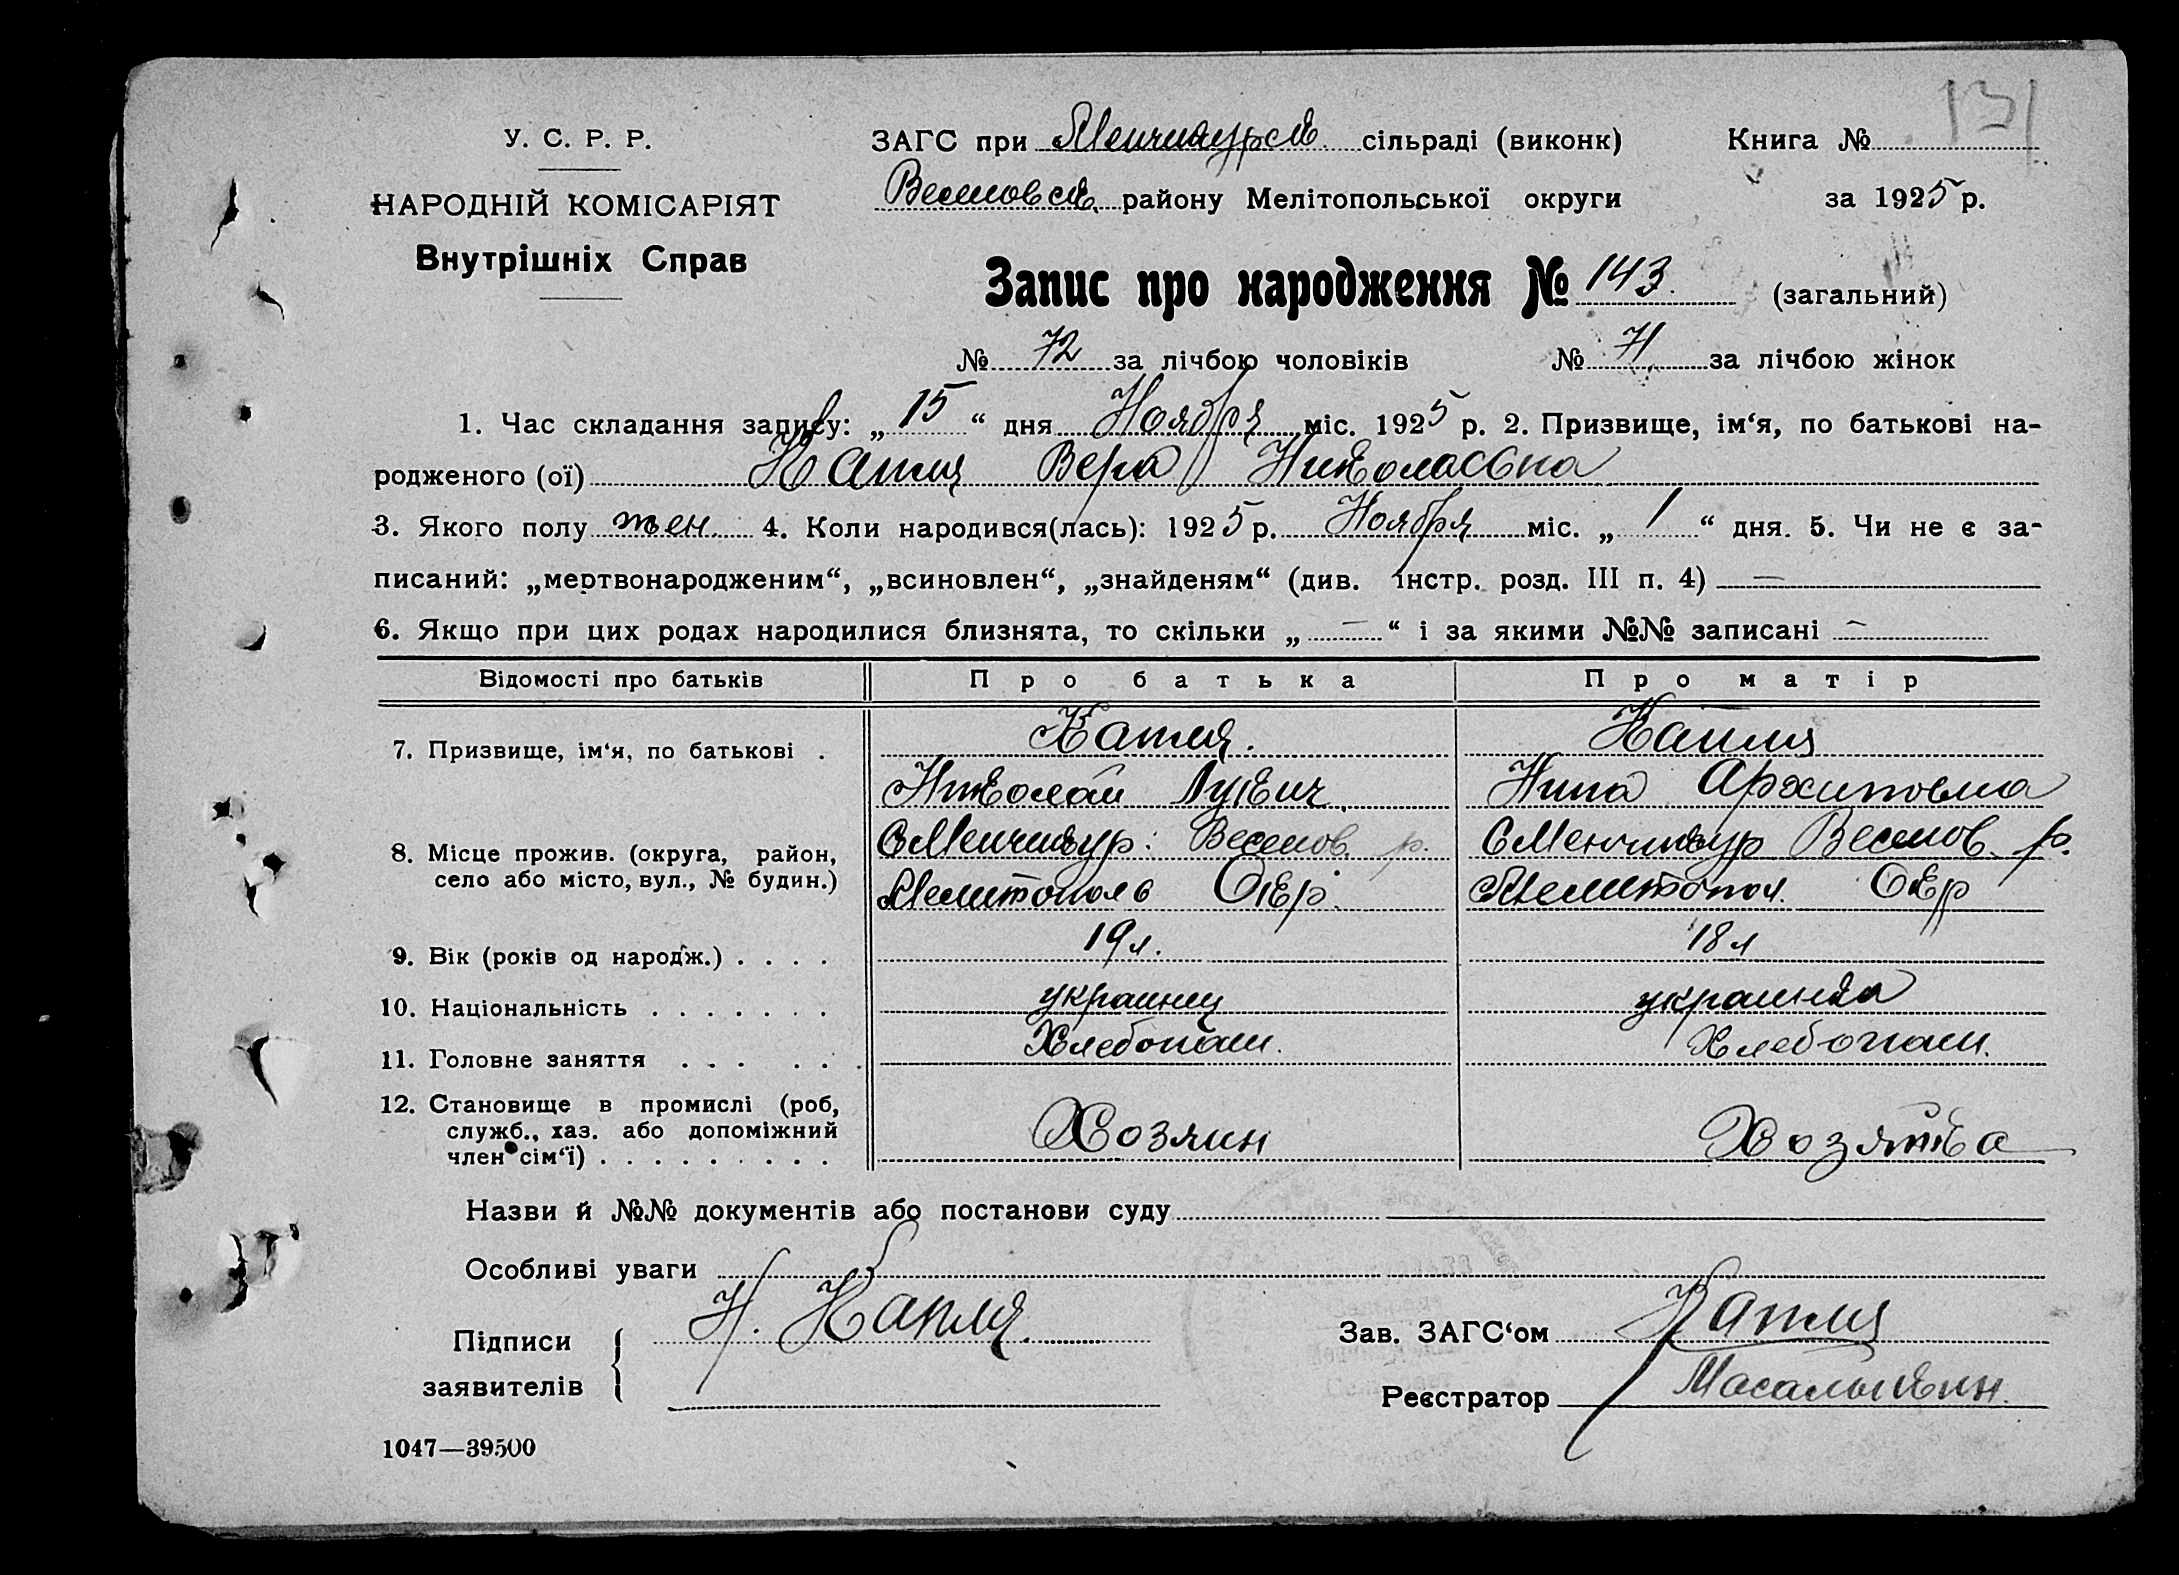 131
У. С. Р. Р.
НАРОДНІЙ КОМІСАРІЯТ
Внутрішніх Справ
ЗАГС при Менчикурск. сільраді (виконк) Книга №
Веселовск. району Мелітопольської округи за 1925 р.
Запис про народження № 143. (загальний)
№ 72 за лічбою чоловіків № 71 за лічбою жінок
1. Час складання запису: „ 15 “ дня Ноября міс. 1925 р. 2. Призвище, ім‘я, по батькові на-
родженого (ої) Капля Вера Николаевна
3. Якого полу жен. 4. Коли народився(лась): 1925 р. Ноября міс. „ 1 “ дня. 5. Чи не є за-
писаний: „мертвонародженим“, „всиновлен“, „знайденям“ (див. інстр. розд. III п. 4) —
6. Якщо при цих родах народилися близнята, то скільки „ — “ і за якими №№ записані —
Відомості про батьків Про батька Про матір
7. Призвище, ім‘я, по батькові . Капля. Капля
Николай Лукич. Нина Архиповна
8. Місце прожив. (округа, район, С Менчикур. Веселов. р. С Менчикур Веселов. р.
село або місто, вул., № будин.) Мелитополь Окр. Мелитопол. Окр
9. Вік (років од народж.) . . . . 19 л. 18 л
10. Національність . . . . . . . украинец украинка
11. Головне заняття . . . . . . Хлебопаш. Хлебопаш.
12. Становище в промислі (роб,
служб., хаз. або допоміжний Хозяин Хозяйка
член сім‘ї) . . . . . . . . .
Назви й №№ документів або постанови суду
Особливі уваги
Підписи Н. Капля. Зав. ЗАГС‘ом Капля
заявителів Реєстратор Масалыкин.
1047—39500